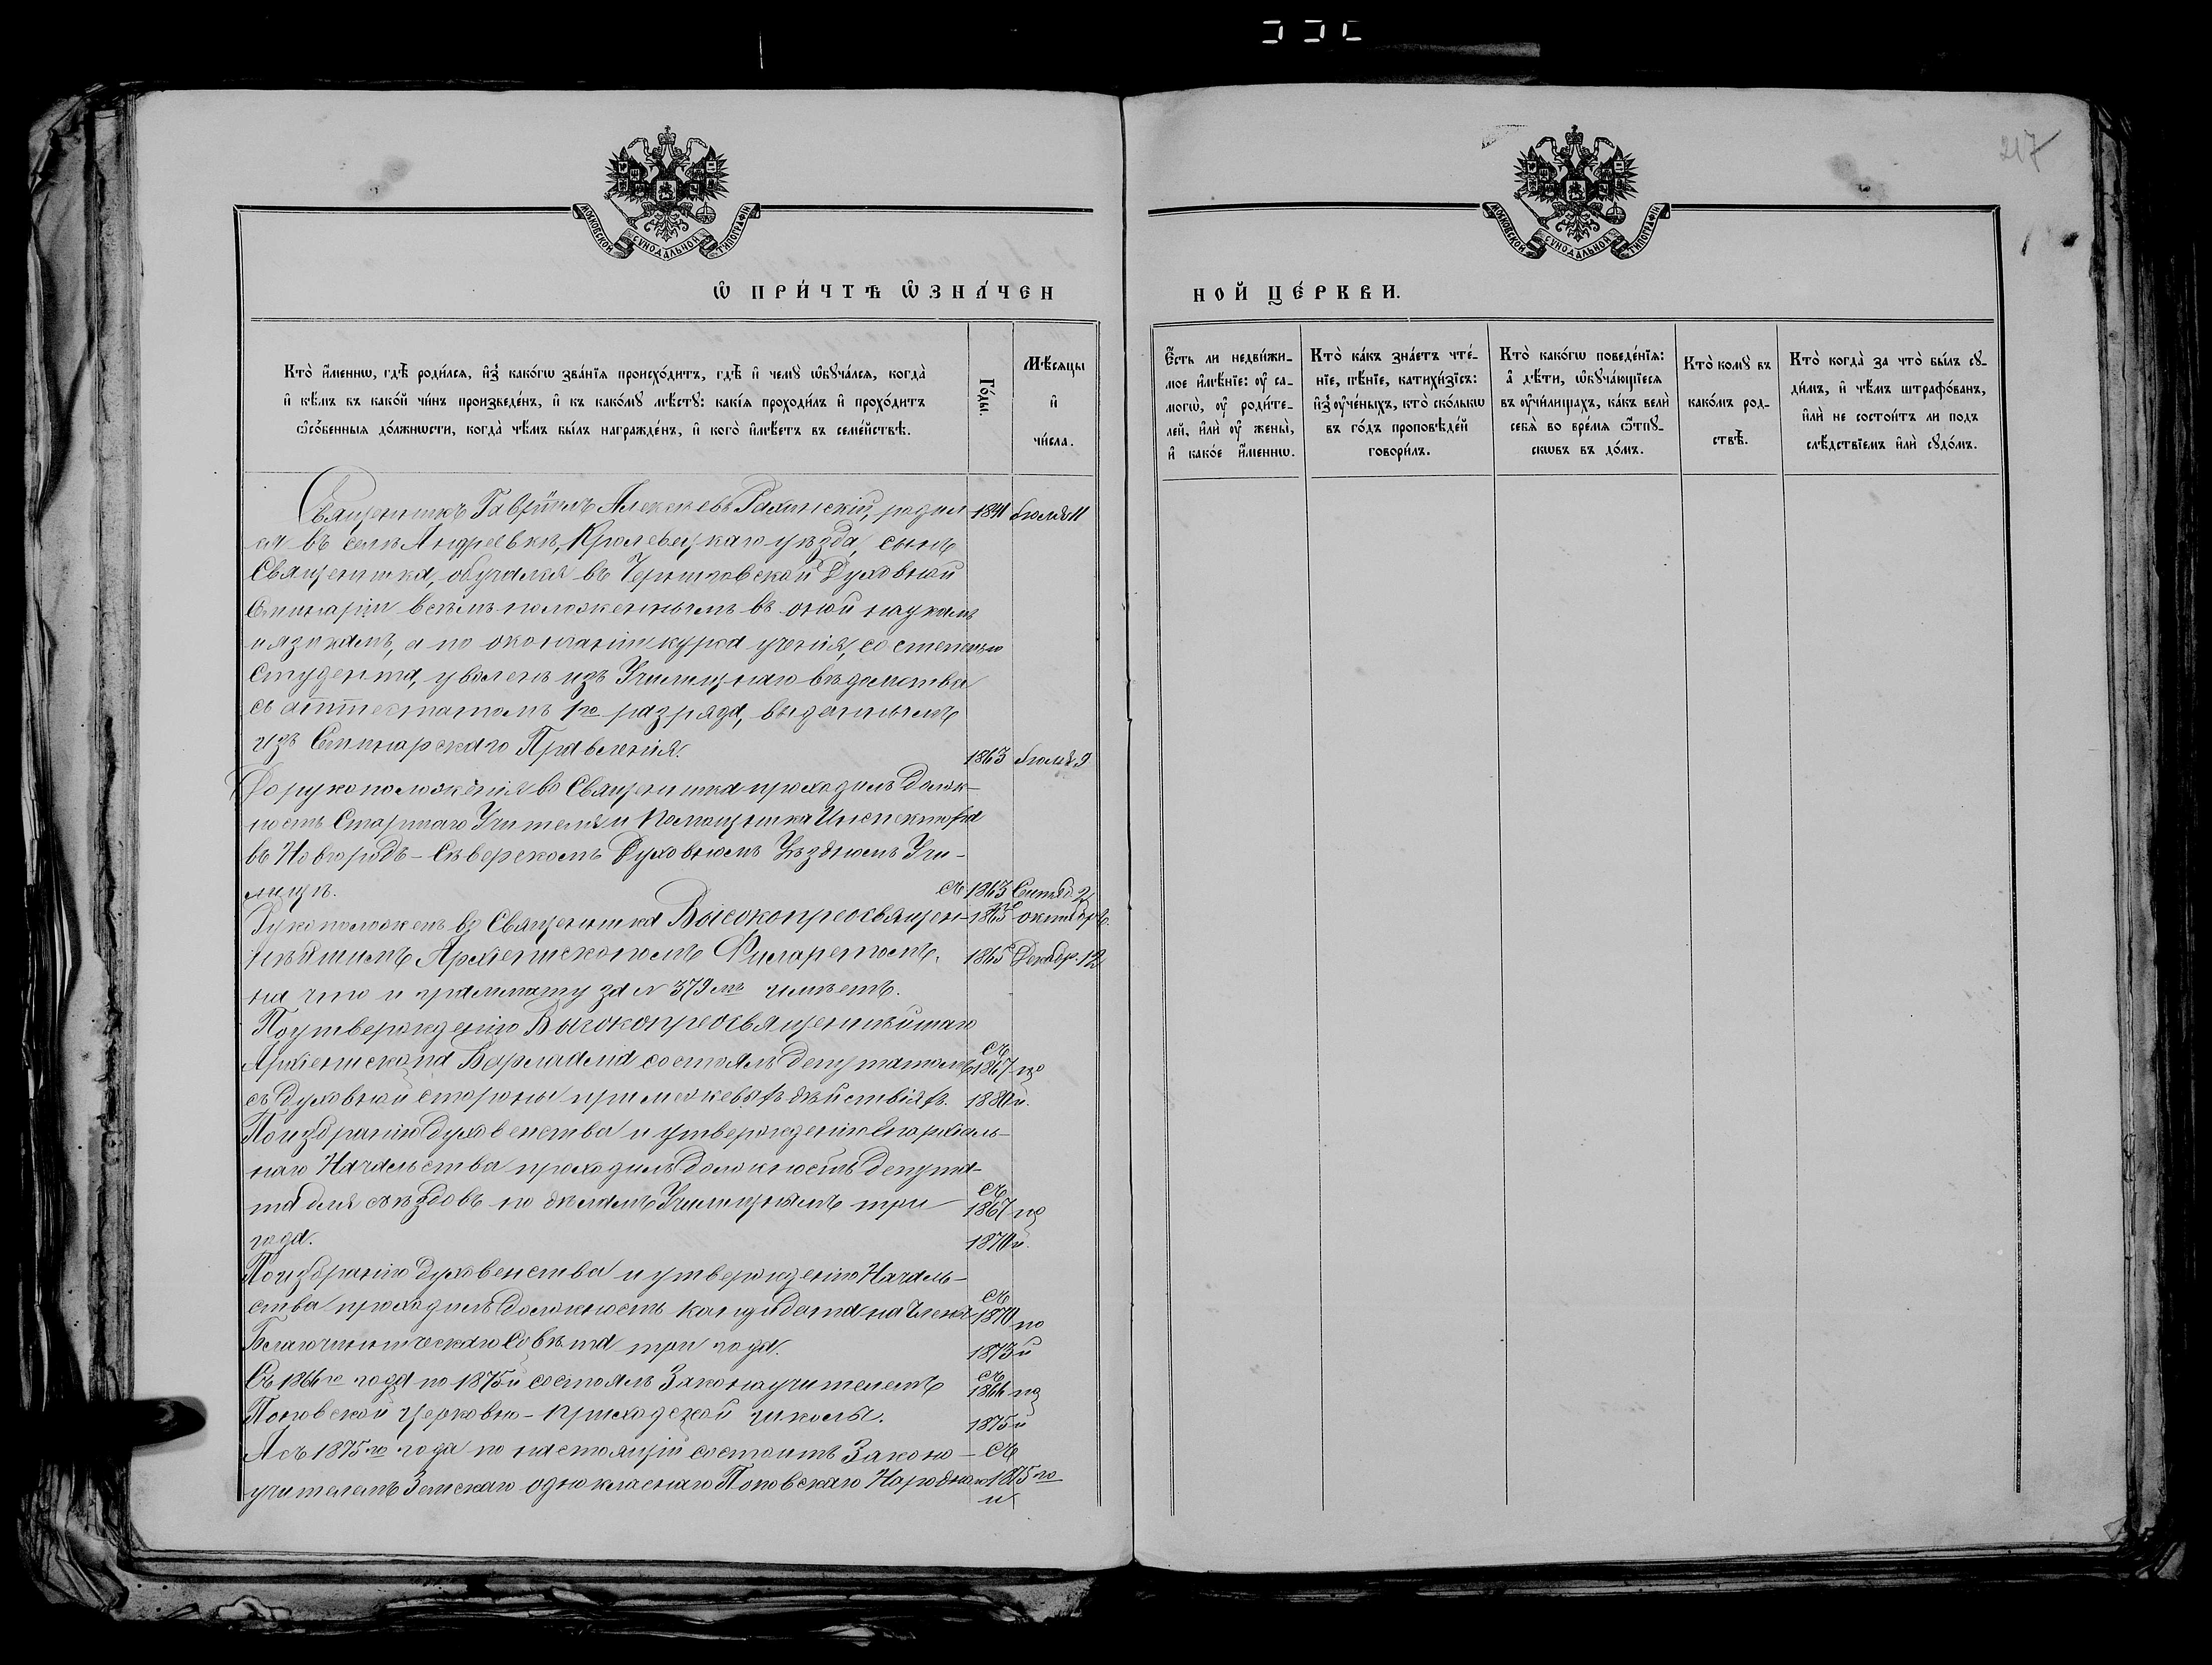 217
МОСКОВСКОЙ СУНОДАЛЬНОЙ ТИПОГРАФІИ
МОСКОВСКОЙ СУНОДАЛЬНОЙ ТИПОГРАФІИ
Ѡ ПРИ́ЧТѢ Ѡ҆ЗНА́ЧЕН
НОЙ ЦЕ́РКВИ.
Кто̀ и҆́меннѡ, гдѣ̀ роди́лсѧ, и҆з̾ како́гѡ зва́нїѧ происхо́дитъ, гдѣ̀ и҆ чемꙋ̀ ѡ҆бꙋча́лсѧ, когда̀
и҆ кѣ́мъ въ како́й чи́нъ произведе́нъ, и҆ къ како́мꙋ мѣ́стꙋ: какі́ѧ проходи́лъ и҆ прохо́дитъ
ѻ҆со́бенныѧ до́лжнѡсти, когда̀ чѣ́мъ бы́лъ награжде́нъ, и҆ кого̀ и҆мѣ́етъ въ семе́йствѣ.
Го́ды.
Мѣ́сѧцы
и҆
чи́сла.
Є҆́сть ли недви́жи-
мое и҆мѣ́нїе: оу҆ са-
могѡ̀, оу҆ роди́те-
лей, и҆лѝ оу҆ жены̀,
и҆ како́е и҆́меннѡ.
Кто̀ ка́къ зна́етъ чте́-
нїе, пѣ́нїе, катихи́зїсъ:
и҆з̾ оу҆че́ныхъ, кто̀ ско́лькѡ
въ го́дъ проповѣ́дей
говори́лъ.
Кто̀ како́гѡ поведе́нїѧ:
а҆ дѣ́ти, ѡ҆бꙋча́ющїесѧ
въ оу҆чи́лищахъ, ка́къ велѝ
себѧ̀ во вре́мѧ ѿпꙋ-
скѡвъ въ до́мъ.
Кто̀ комꙋ̀ въ
како́мъ род-
ствѣ̀.
Кто̀ когда̀ за что̀ бы́лъ сꙋ-
ди́мъ, и҆ чѣ́мъ штрафо́ванъ,
и҆лѝ не состои́тъ ли подъ
слѣ́дствїемъ и҆лѝ сꙋдо́мъ.
Священникъ Гавріилъ Алексеевъ Рахинскій, родил 1841 Іюля 11
ся въ селѣ Андреевкѣ, Кролевецкаго уѣзда, сынъ
Священника, обучался въ Черниговской Духовной
Семинаріи всѣмъ положеннымъ въ оной наукамъ
и языкамъ, а по окончаніи курса ученія, со степенью
Студента, уволенъ изъ Училищнаго вѣдомства
съ аттестатомъ 1го разряда, выданнымъ
изъ Семинарскаго Правленія. 1863 Іюля 9
До рукоположенія во Священника проходилъ долж-
ность Старшаго Учителя и Помощника Инспектора
въ Новгородъ-Сѣверскомъ Духовномъ Уѣздномъ Учи-
лищѣ. съ 1863 Сентяб. 2
Рукоположенъ во Священника Высокопреосвящен- 1865 октябрь.
нѣйшимъ Архіепископомъ Филаретомъ, 1865 Декабр. 12
на что и граммату за N 379мъ имѣетъ.
По утвержденію Высокопреосвященнѣйшаго
Архіепископа Варлаама состоялъ депутатомъ съ 1867 по
съ духовной стороны при межевыхъ дѣйствіяхъ. 1880й.
По избранію Духовенства и утвержденію Епархіаль-
наго Начальства проходилъ должность депута-
та для съѣздовъ по дѣламъ Училищнымъ три съ 1867 по
года. 1870й.
По избранію духовенства и утвержденію Началь-
ства проходилъ должность кандидата на Члена съ 1870 по
Благочинническаго Совѣта три года. 1873й
Съ 1866го года по 1875й состоялъ Законоучителемъ съ 1866 по
Поповской церковно-приходской школы. 1875й
А съ 1875го года по настоящій состоитъ Законо- съ
учителемъ Земскаго однокласнаго Поповскаго Народнаго 1875го
и